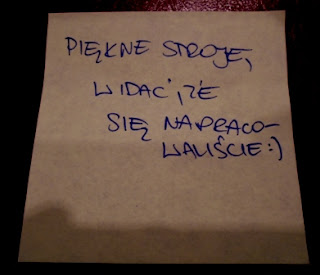 PIĘKNE STROJE,
WIDAĆ, ŻE
SIĘ NAPRACO-
WALIŚCIE :)